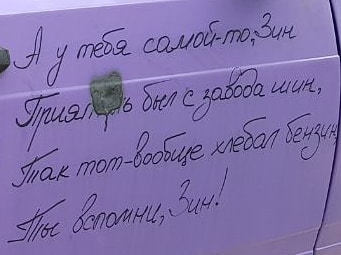 А у тебя самой-то, Зин
Приятель был с завода шин,
Так тот-вообще хлебал бензин
Ты вспомни, Зин!